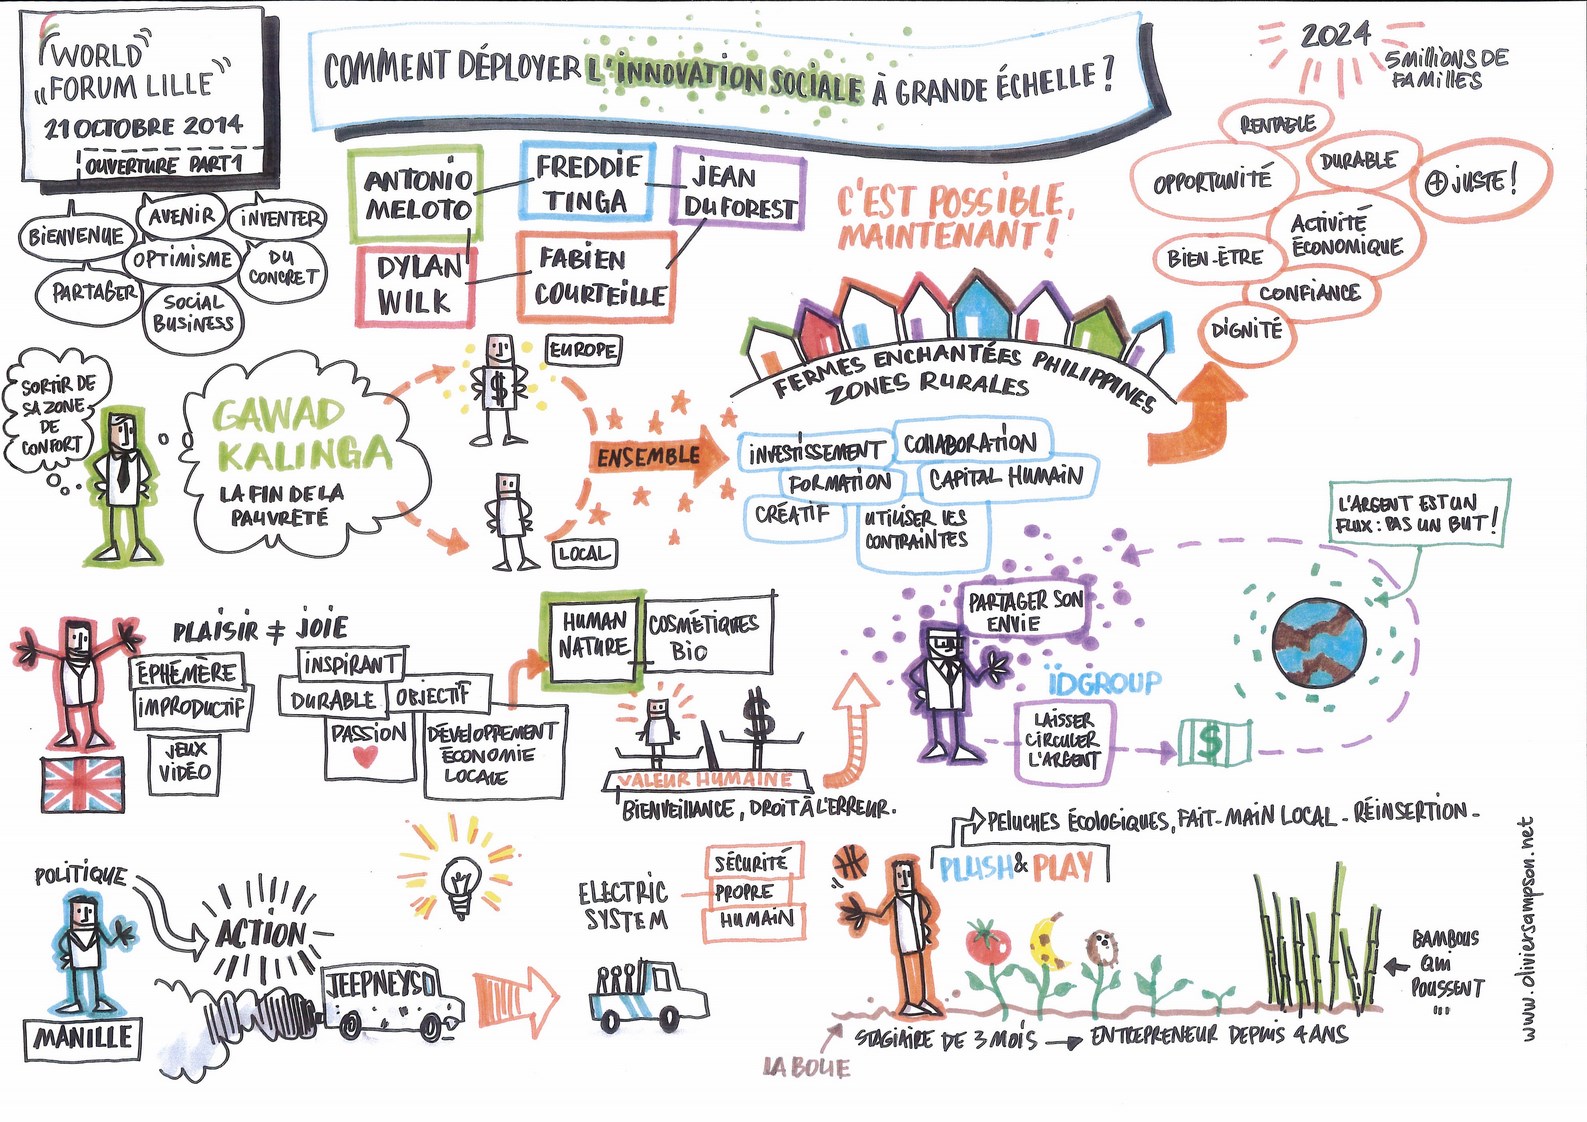 "WORLD"
"FORUM LILLE"
21 OCTOBRE 2014
OUVERTURE PART 1
COMMENT DÉPLOYER L'INNOVATION SOCIALE À GRANDE ÉCHELLE ?
2024
5 MILLIONS DE
FAMILLES
BIENVENUE
AVENIR
INVENTER
OPTIMISME
DU
CONCRET
PARTAGER
SOCIAL
BUSINESS
ANTONIO
MELOTO
FREDDIE
TINGA
JEAN
DUFOREST
DYLAN
WILK
FABIEN
COURTEILLE
C'EST POSSIBLE,
MAINTENANT !
RENTABLE
OPPORTUNITÉ
DURABLE
+ JUSTE !
ACTIVITÉ
ÉCONOMIQUE
BIEN-ÊTRE
CONFIANCE
DIGNITÉ
SORTIR DE
SA ZONE
DE
CONFORT
GAWAD
KALINGA
LA FIN DE LA
PAUVRETÉ
$
EUROPE
LOCAL
ENSEMBLE
FERMES ENCHANTÉES PHILIPPINES
ZONES RURALES
INVESTISSEMENT
COLLABORATION
FORMATION
CAPITAL HUMAIN
CRÉATIF
UTILISER LES
CONTRAINTES
L'ARGENT EST UN
FLUX : PAS UN BUT !
PLAISIR ≠ JOIE
ÉPHÉMÈRE
IMPRODUCTIF
JEUX
VIDÉO
INSPIRANT
DURABLE
OBJECTIF
PASSION
DÉVELOPPEMENT
ÉCONOMIE
LOCALE
HUMAN
NATURE
COSMÉTIQUES
BIO
$
VALEUR HUMAINE
BIENVEILLANCE, DROIT À L'ERREUR.
PARTAGER SON
ENVIE
ÏDGROUP
LAISSER
CIRCULER
L'ARGENT
$
POLITIQUE
ACTION
MANILLE
JEEPNEYS
ELECTRIC
SYSTEM
SÉCURITÉ
PROPRE
HUMAIN
PELUCHES ÉCOLOGIQUES, FAIT-MAIN LOCAL - RÉINSERTION -
PLUSH & PLAY
BAMBOUS
QUI
POUSSENT
...
STAGIAIRE DE 3 MOIS → ENTREPRENEUR DEPUIS 4 ANS
LA BOUE
www.oliviersampson.net